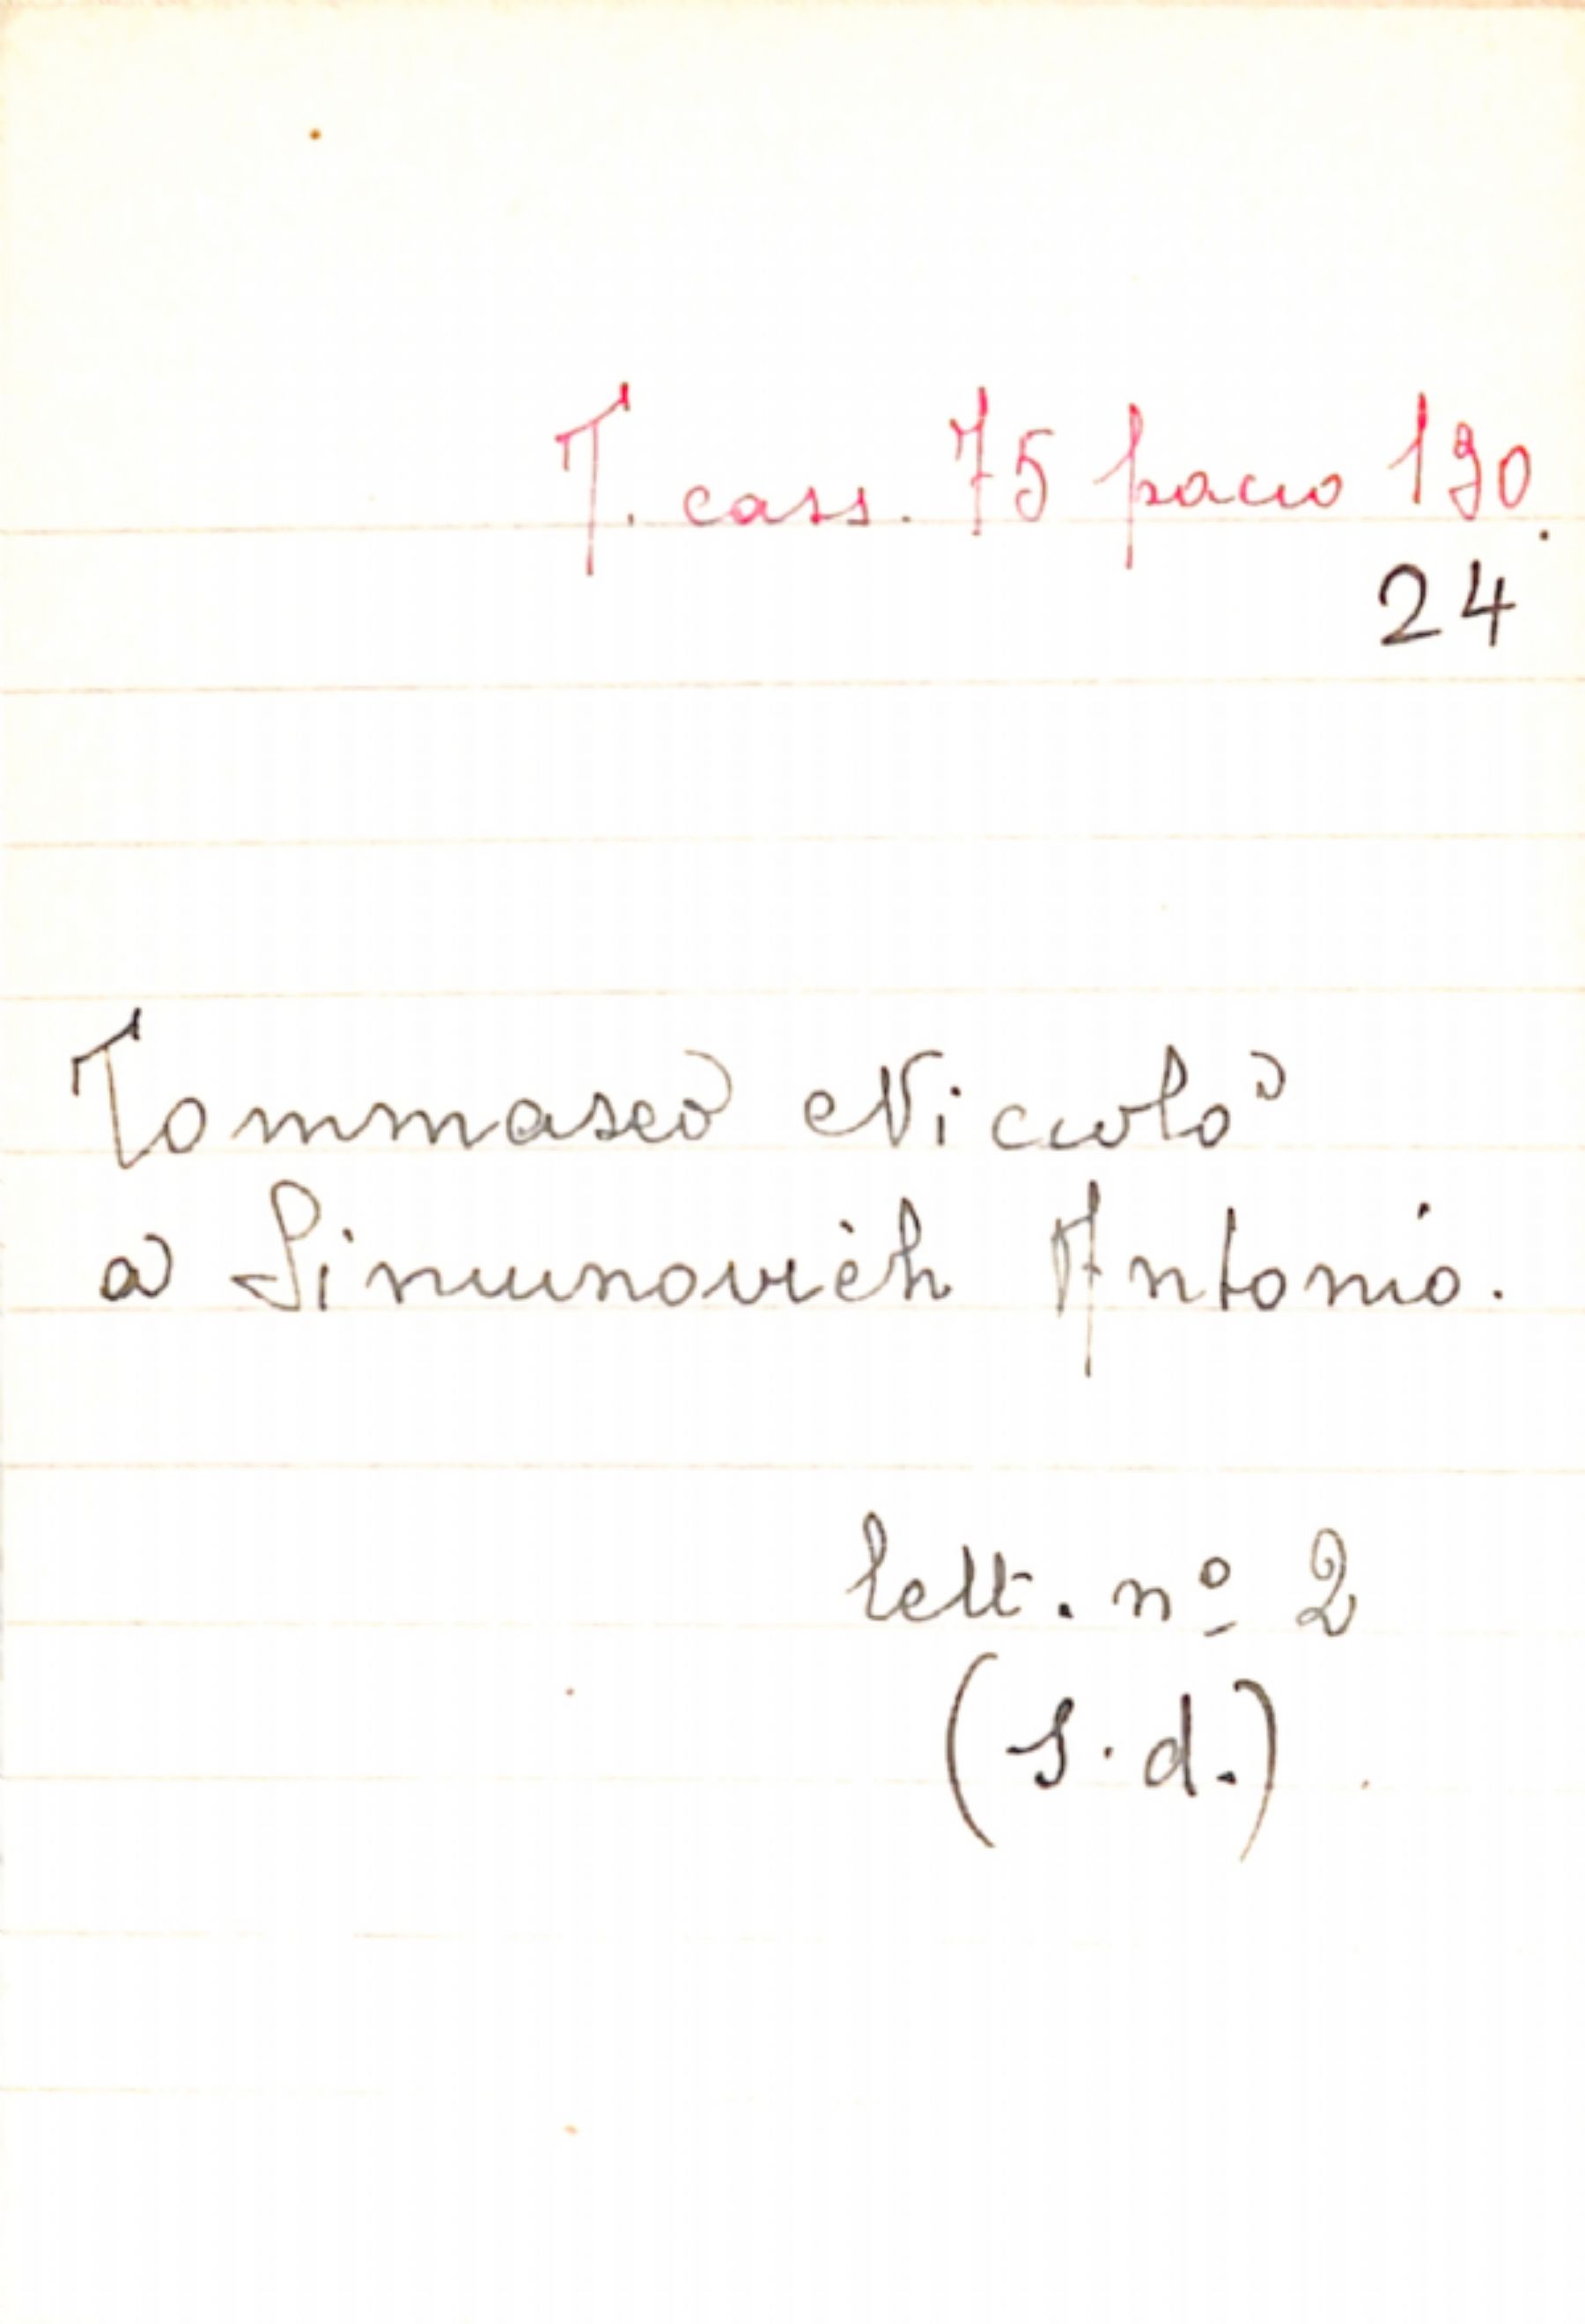 T. cass. 75 pacco 130.
24
Tommaseo Niccolò
a Simunovich Antonio.
lett. nº 2
(s.d.)